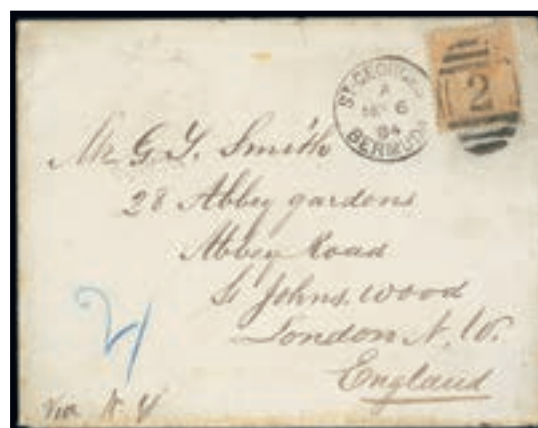 ST. GEORGES
A
6
84
BERMUDA
2
Mr G. Smith
28 Abbey gardens
Abbey Road
St Johns. wood
London N. W.
England
Via N. Y